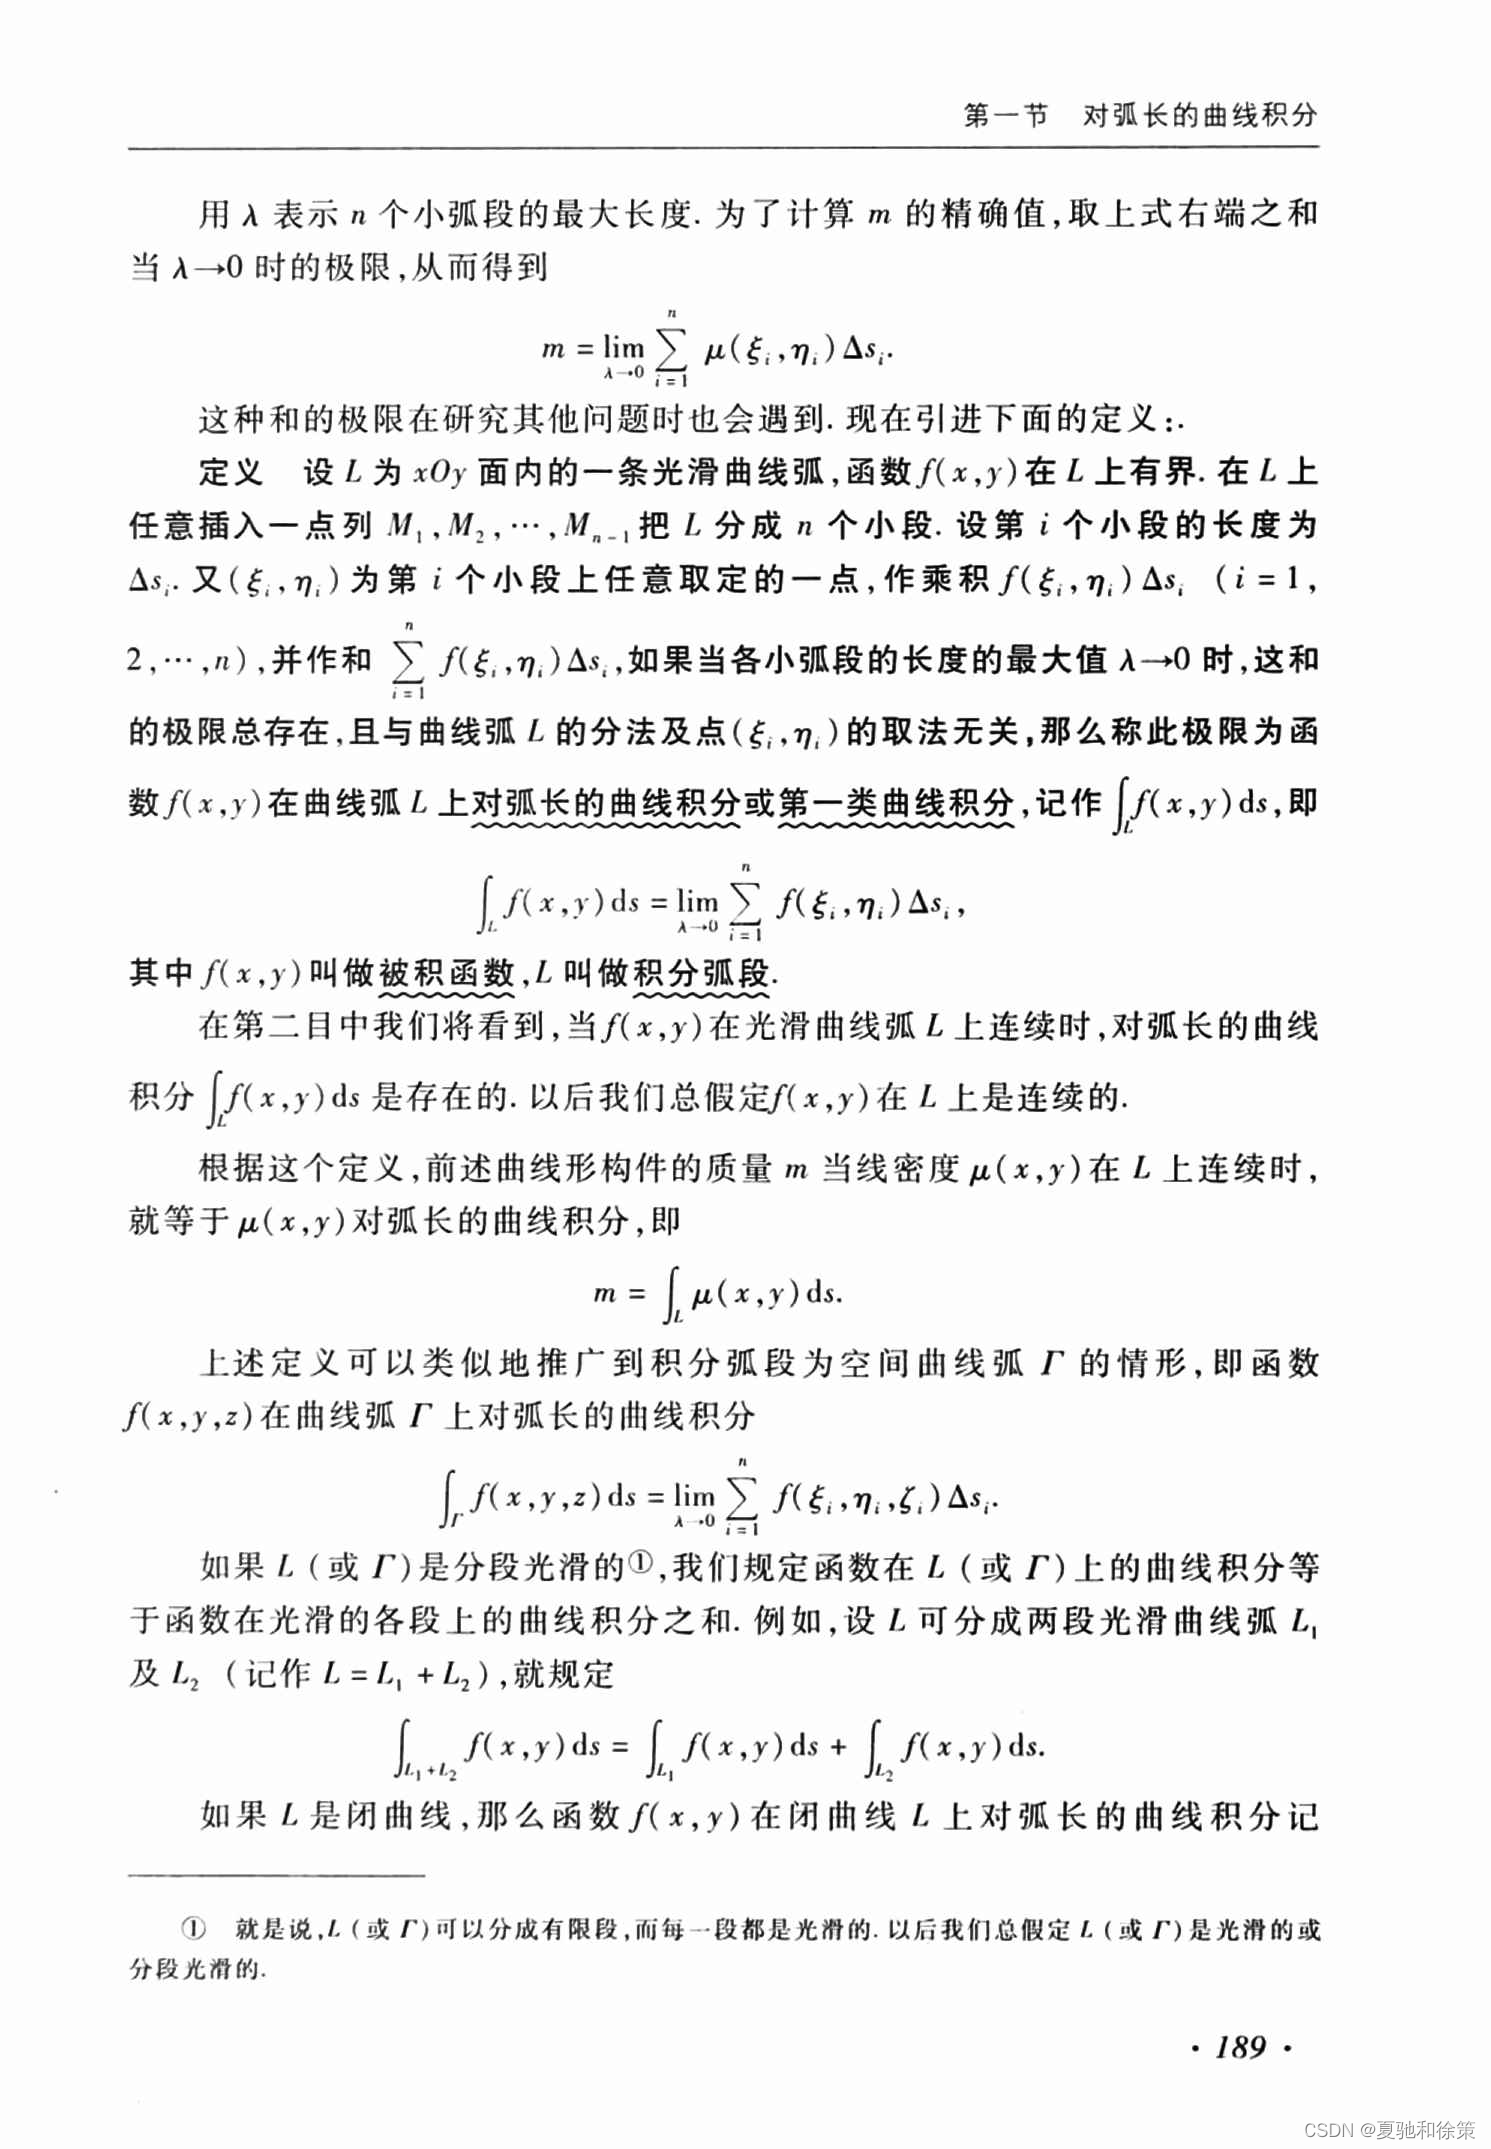 第一节 对弧长的曲线积分
用 λ 表示 n 个小弧段的最大长度. 为了计算 m 的精确值,取上式右端之和
当 λ→0 时的极限,从而得到
m = lim_{λ→0} ∑_{i=1}^{n} μ(ξ_i,η_i)Δs_i.
这种和的极限在研究其他问题时也会遇到. 现在引进下面的定义:.
定义 设 L 为 xOy 面内的一条光滑曲线弧,函数 f(x,y)在 L 上有界. 在 L 上
任意插入一点列 M_1,M_2,…,M_{n-1}把 L 分成 n 个小段. 设第 i 个小段的长度为
Δs_i. 又(ξ_i,η_i)为第 i 个小段上任意取定的一点,作乘积 f(ξ_i,η_i)Δs_i (i = 1,
2,…,n),并作和 ∑_{i=1}^{n} f(ξ_i,η_i)Δs_i,如果当各小弧段的长度的最大值 λ→0 时,这和
的极限总存在,且与曲线弧 L 的分法及点(ξ_i,η_i)的取法无关,那么称此极限为函
数 f(x,y)在曲线弧 L 上对弧长的曲线积分或第一类曲线积分,记作 ∫_L f(x,y)ds,即
∫_L f(x,y)ds = lim_{λ→0} ∑_{i=1}^{n} f(ξ_i,η_i)Δs_i,
其中 f(x,y)叫做被积函数,L 叫做积分弧段.
在第二目中我们将看到,当 f(x,y)在光滑曲线弧 L 上连续时,对弧长的曲线
积分 ∫_L f(x,y)ds 是存在的. 以后我们总假定 f(x,y)在 L 上是连续的.
根据这个定义,前述曲线形构件的质量 m 当线密度 μ(x,y)在 L 上连续时,
就等于 μ(x,y)对弧长的曲线积分,即
m = ∫_L μ(x,y)ds.
上述定义可以类似地推广到积分弧段为空间曲线弧 Γ 的情形,即函数
f(x,y,z)在曲线弧 Γ 上对弧长的曲线积分
∫_Γ f(x,y,z)ds = lim_{λ→0} ∑_{i=1}^{n} f(ξ_i,η_i,ζ_i)Δs_i.
如果 L (或 Γ)是分段光滑的①,我们规定函数在 L (或 Γ)上的曲线积分等
于函数在光滑的各段上的曲线积分之和. 例如,设 L 可分成两段光滑曲线弧 L_1
及 L_2 (记作 L = L_1 + L_2),就规定
∫_{L_1+L_2} f(x,y)ds = ∫_{L_1} f(x,y)ds + ∫_{L_2} f(x,y)ds.
如果 L 是闭曲线,那么函数 f(x,y)在闭曲线 L 上对弧长的曲线积分记
① 就是说,L (或 Γ)可以分成有限段,而每一段都是光滑的. 以后我们总假定 L (或 Γ)是光滑的或
分段光滑的.
· 189 ·
CSDN @夏驰和徐策